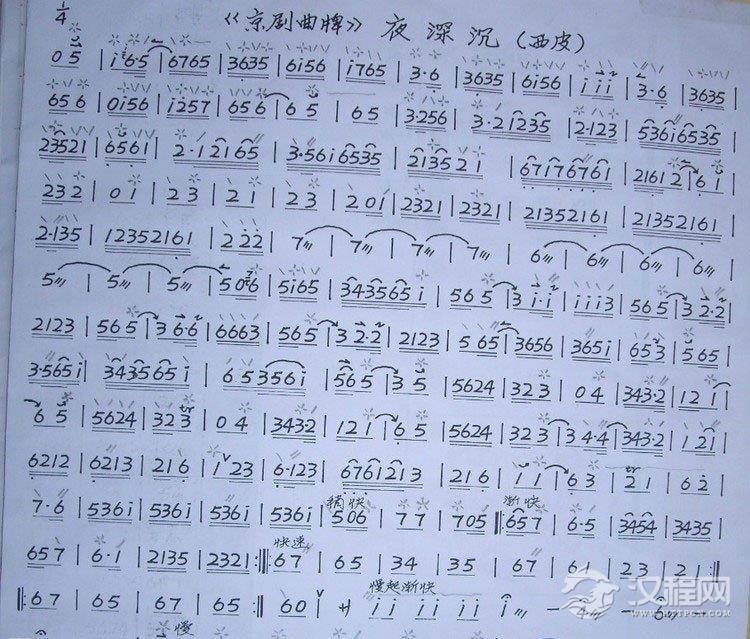 1/4 《京剧曲牌》 夜深沉（西皮）
0 5 | i 6·5 | 6765 | 3635 | 6i56 | i765 | 3·6 | 3635 | 6i56 | i i i | 3·6 | 3635
656 | 0i56 | i257 | 656 | 6 5 | 65 | 3·256 | 3·21235 | 2·123 | 536i6535
23521 | 6561 | 2·12165 | 3·56i6535 | 213521 | 67176761 | 21612 | 6 i
232 | 0 i | 23 | 2i | 23 | 20i | 2321 | 2321 | 21352161 | 21352161
2·135 | 12352161 | 222 | 7 | 7 | 7 | 7 | 6 | 6 | 6 | 6
5 | 5 | 5 | 506 | 5i65 | 343565i | 565 | 3 i·i | i i i 3 | 565 | 3 2·2
2123 | 565 | 3 6·6 | 6663 | 565 | 3 2·2 | 2123 | 565 | 3656 | 365i | 653 | 565
3·565i | 343565i | 653561 | 565 | 35 | 5624 | 323 | 04 | 343·2 | 12 1
65 | 5624 | 323 | 04 | 343·2 | 121 | 65 | 5624 | 323 | 34·4 | 343·2 | 121
6212 | 6213 | 216 | i 23 | 6·123 | 6761213 | 216 | i i | 63 | 21 | 62
7·6 | 536i | 536i | 536i | 536i | 稍快 506 | 77 | 705 ‖: 渐快 657 | 6·5 | 3454 | 3435
657 | 6·1 | 2135 | 2321 :‖: 快速 67 | 65 | 34 | 35 | 67 | 61 | 23 | 21 :‖
‖: 67 | 65 | 67 | 65 :‖ 60 | 慢起渐快 i i i i i i — 6 — 6 —
慢
汉程网